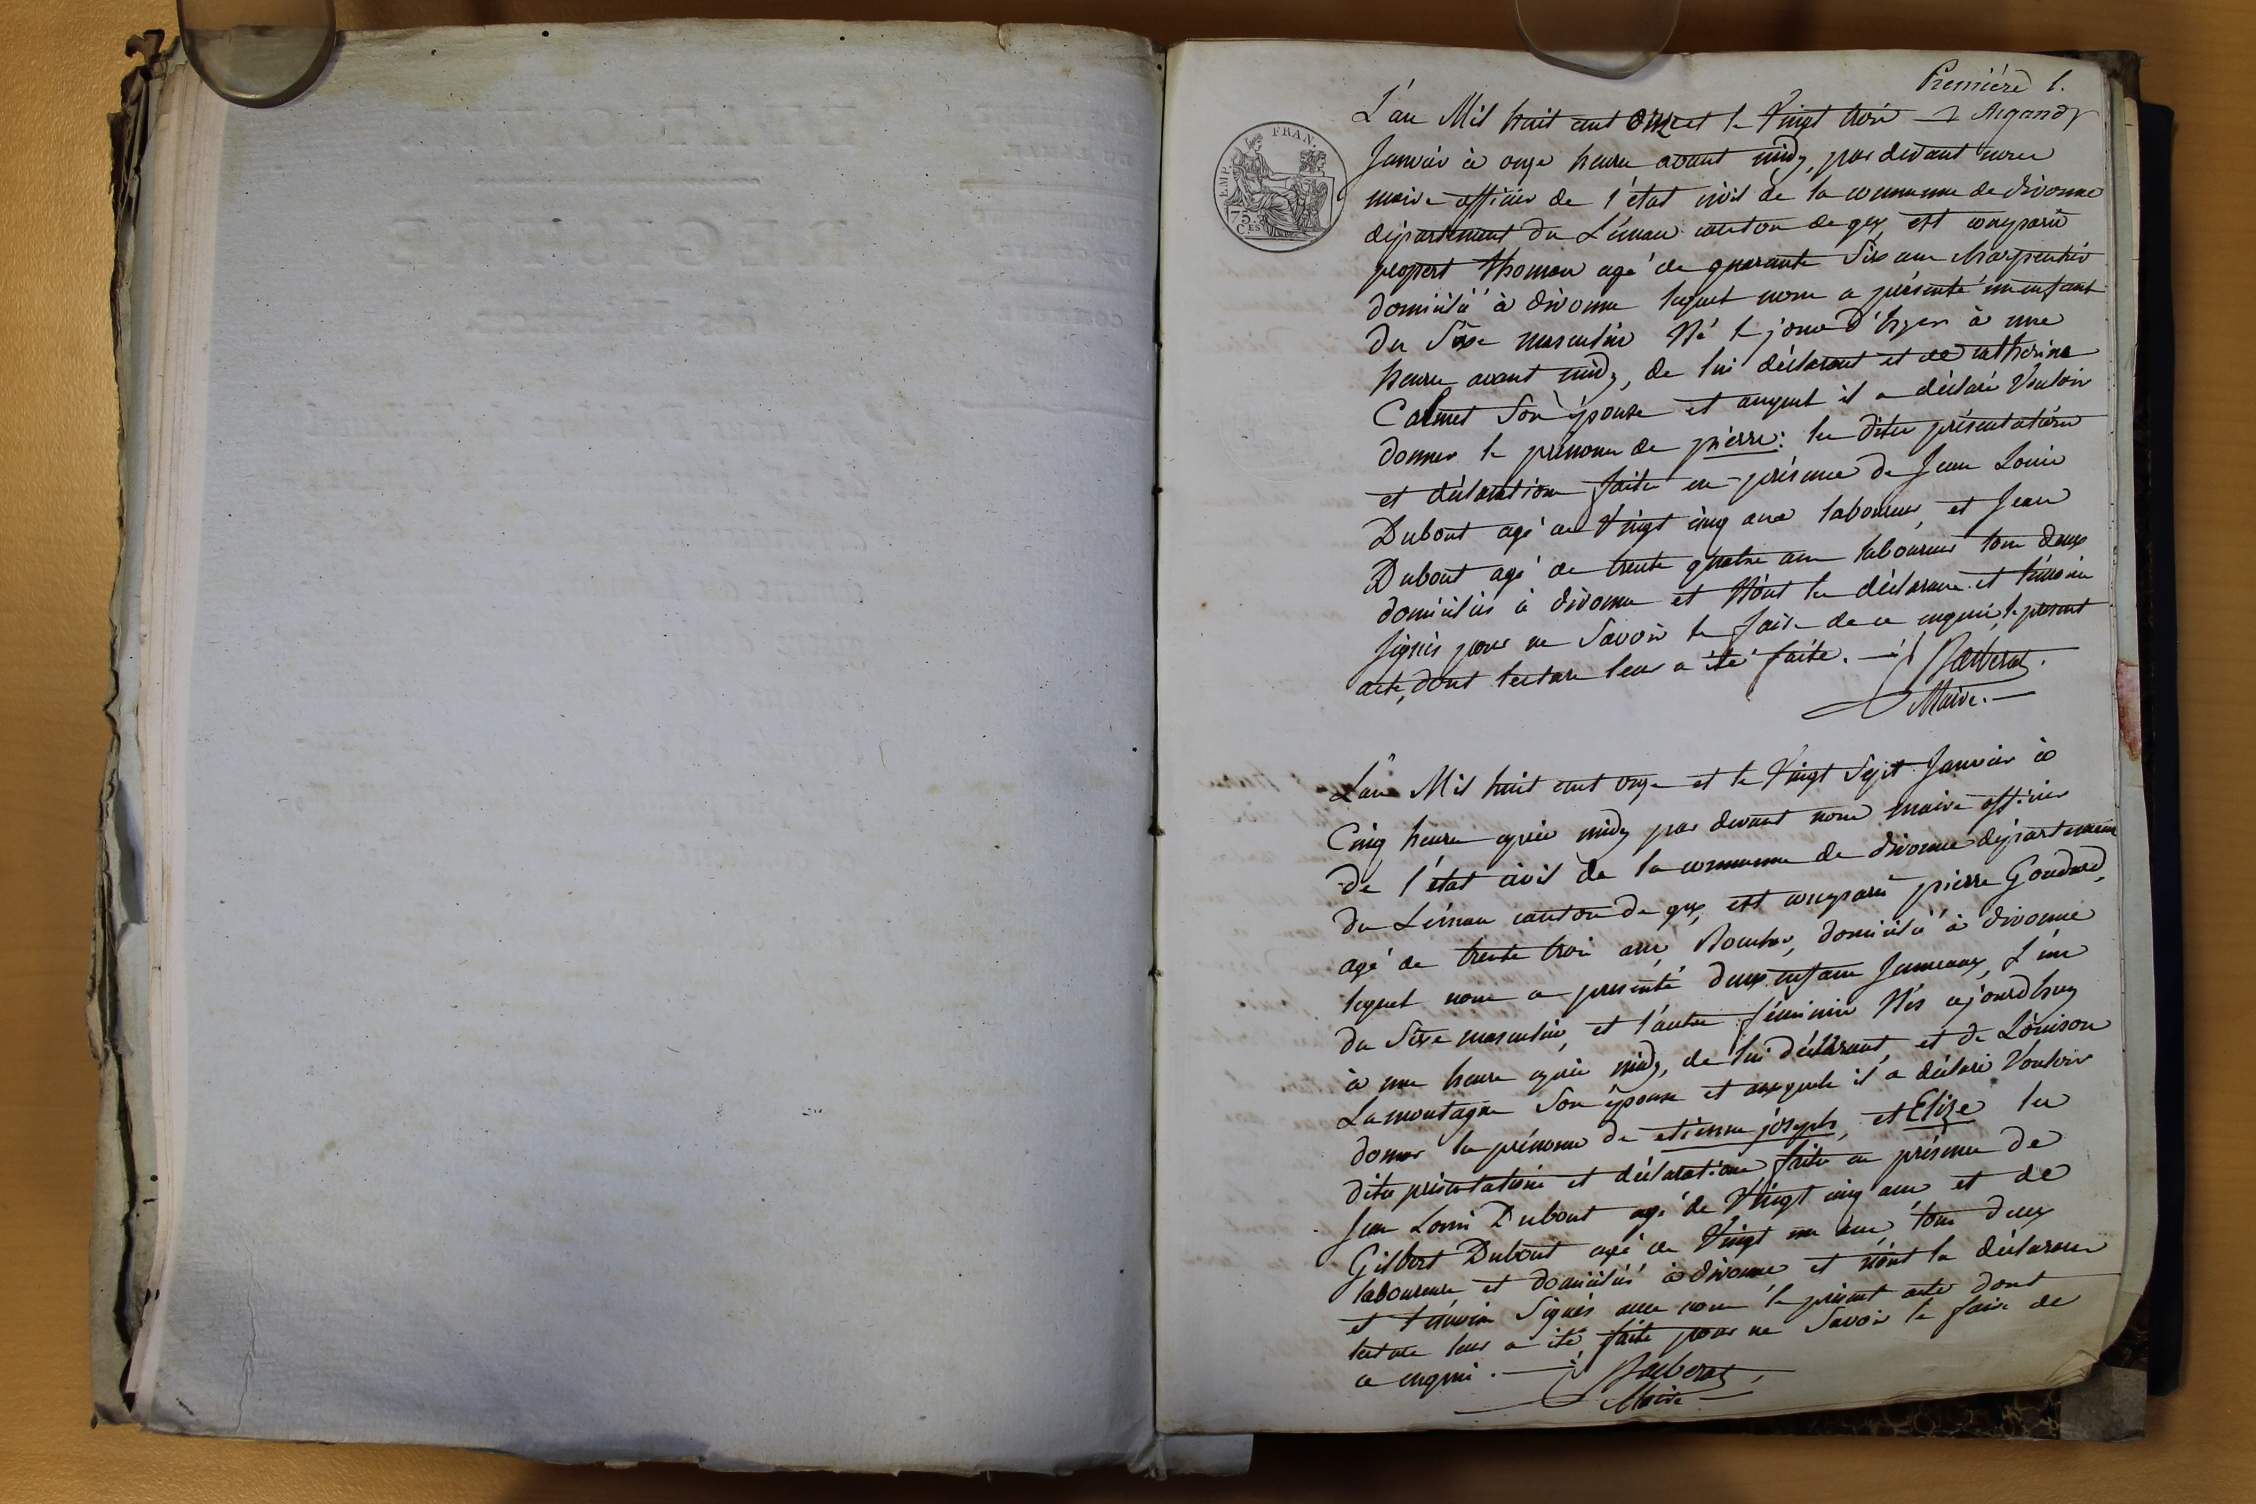 Première 1.
L'an Mil huit cent onze et le Vingt trois
Janvier à onze heures avant midy, par devant nous
maire officier de l'état civil de la commune de divonne
département du Léman canton de gex, est comparu
thomen agé de quarante Six ans charpentier
domicilié à divonne lequel nous a présenté un enfant
du Sèxe masculin Né le jour d'hyer à une
heure avant midy, de lui déclarant et de catherine
Calmet Son épouse et auquel il a déclaré Vouloir
donner le prénom de pierre: les dites présentation
et déclaration faites en présence de Jean Louis
Dubout agé de Vingt cinq ans laboureur, et Jean
Dubout agé de trente quatre ans laboureur tous deux
domiciliés à divonne et N'ont les déclarans et témoins
Signés pour ne Savoir le faire de ce enquis, le présent
acte, dont lecture leur a été faite.
Maire.
FRAN.
EMP.
75.
C.ES
L'an Mil huit cent onze et le Vingt Sept Janvier à
Cinq heures après midy par devant nous maire officier
De l'état civil de la commune de divonne département
du Léman canton de gex, est comparu pierre Goudard,
agé de trente trois ans, domicilié à divonne
lequel nous a presenté deux enfans Jumeaux, L'un
du Sèxe masculin, et l'autre féminin Nés aujourdhuy
à une heure après midy, de lui déclarant, et de Louison
Lamontagne Son épouse et auxquels il a déclaré Vouloir
donner les prénoms de etienne joseph, et Elize les
dites présentation et déclaration faites en présence de
Jean Louis Dubout agé de Vingt cinq ans et de
Gilbert Dubout agé de Vingt un ans, tous deux
laboureurs et domiciliés à divonne et n'ont les déclarans
et témoins Signés avec nous le présent acte dont
lecture leur a été faite pour ne Savoir le faire de
ce enquis.
Maire